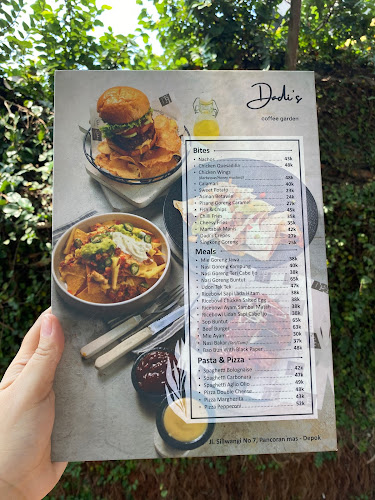 Dadi's
coffee garden
Bites
Nachos 43k
Chicken Quesadilla 48k
Chicken Wings
48k
Calamari 40k
Sweet Potato 33k
Asinan Betawi 24k
Pisang Goreng Caramel 27k
Fish & Chips 45k
Chilli Fries 35k
Cheesy Fries 35k
Martabak Mini 42k
Dadi's Crepes 27k
Singkong Goreng 25k
Meals
Mie Goreng Jawa 38k
Nasi Goreng Kampung 40k
Nasi Goreng Teri Cabe Ijo 38k
Nasi Goreng Buntut 65k
Udon Tek Tek 47k
Ricebowl Sapi Lada Hitam 38k
Ricebowl Chicken Salted Egg 38k
Ricebowl Ayam Sambal Matah 38k
Ricebowl Udon Sapi Cabe Ijo 38k
Sop Buntut 65k
Beef Burger 63k
Mie Ayam 30k
Nasi Bakar 37k
Bao Bun with Black Paper 48k
Pasta & Pizza
Spaghetti Bolognaise 42k
Spaghetti Carbonara 47k
Spaghetti Aglio Olio 49k
Pizza Double Cheese 49k
Pizza Margherita 43k
Pizza Pepperoni 52k
Jl. Siliwangi No 7, Pancoran mas - Depok